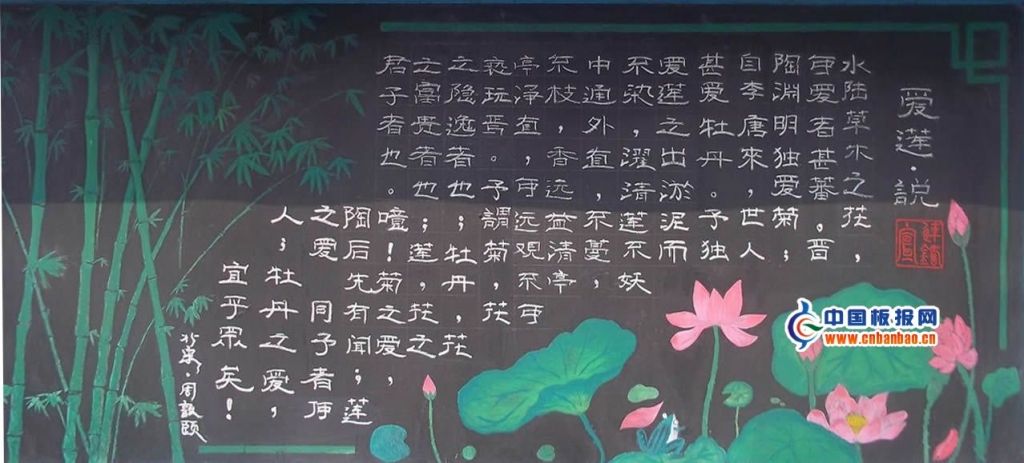 爱莲·説
水陆草木之花，
可爱者甚蕃。晋
陶渊明独爱菊；
自李唐来，世人
甚爱牡丹。予独
爱莲之出淤泥而
不染，濯清莲不妖
中通外直，不蔓，
不枝，香远益清亭
亭净直，可远观不可
亵玩焉。予謂菊，花
之隐逸者也；牡丹，花
之富贵者也；莲，花之
君子者也。噫！菊之爱，
陶后先有闻；莲
之爱 同予者何
人；牡丹之爱，
宜乎眾矣！
北宋·周敦颐
中国板报网
www.cnbanbao.cn